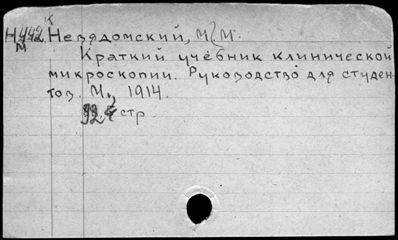 К
Н 442 Невядомский, М. М.
М
Краткий учебник клинической
микроскопии. Руководство для студен-
тов. М., 1914.
стр.